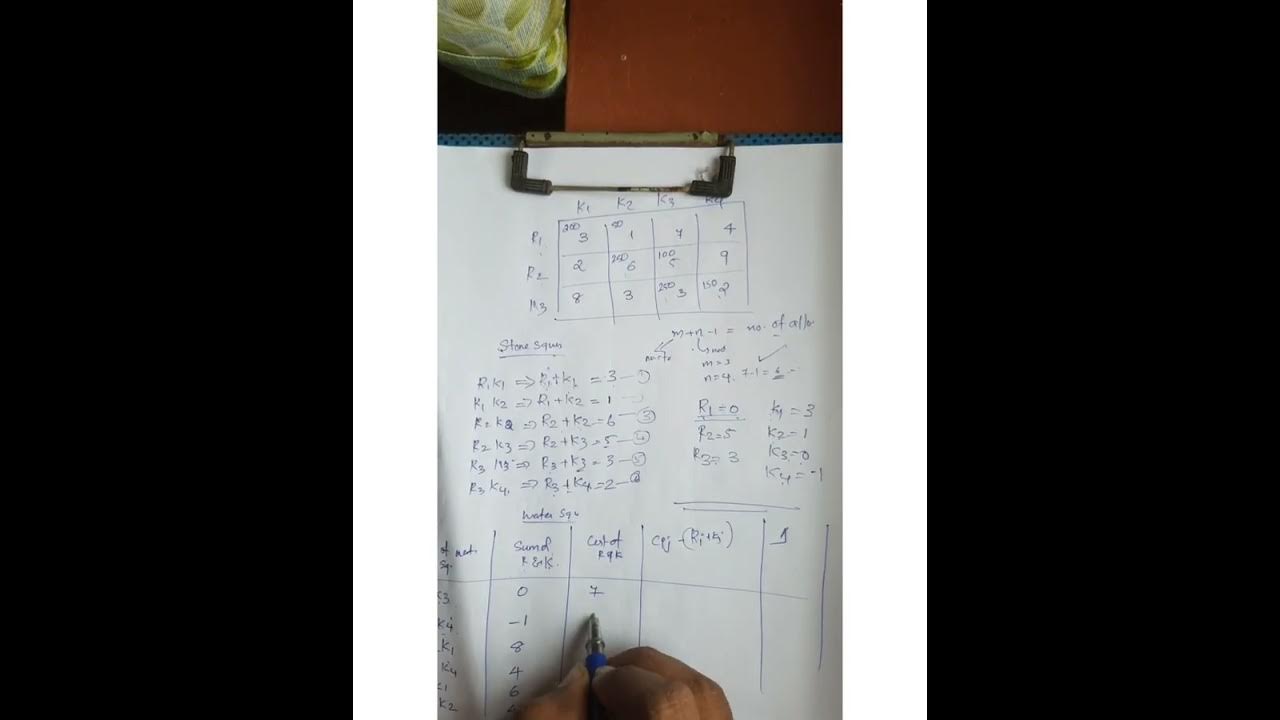 K1 K2 K3 K4
R1 200 3 50 1 7 4
R2 2 250 6 100 5 9
R3 8 3 250 3 150 2
m+n-1 = no. of allo
Stone Squ
m=3
n=4. 7-1=6
R1K1 ⇒ R1+K1 = 3 – ①
R1 K2 ⇒ R1+K2 = 1
R2 K2 ⇒ R2+K2=6 – ③
R2 K3 ⇒ R2+K3=5 – ④
R3 K3 ⇒ R3+K3=3 – ⑤
R3 K4 ⇒ R3+K4=2 – ⑥
R1=0 K1=3
R2=5 K2=1
R3=3 K3=0
K4=-1
Water Squ
of wat. Sum of Cost of Cij-(Ri+Kj) 1
Sq. R&K. R&K
K3 0 7
K4 -1
K1 8
K4 4
K1 6
K2